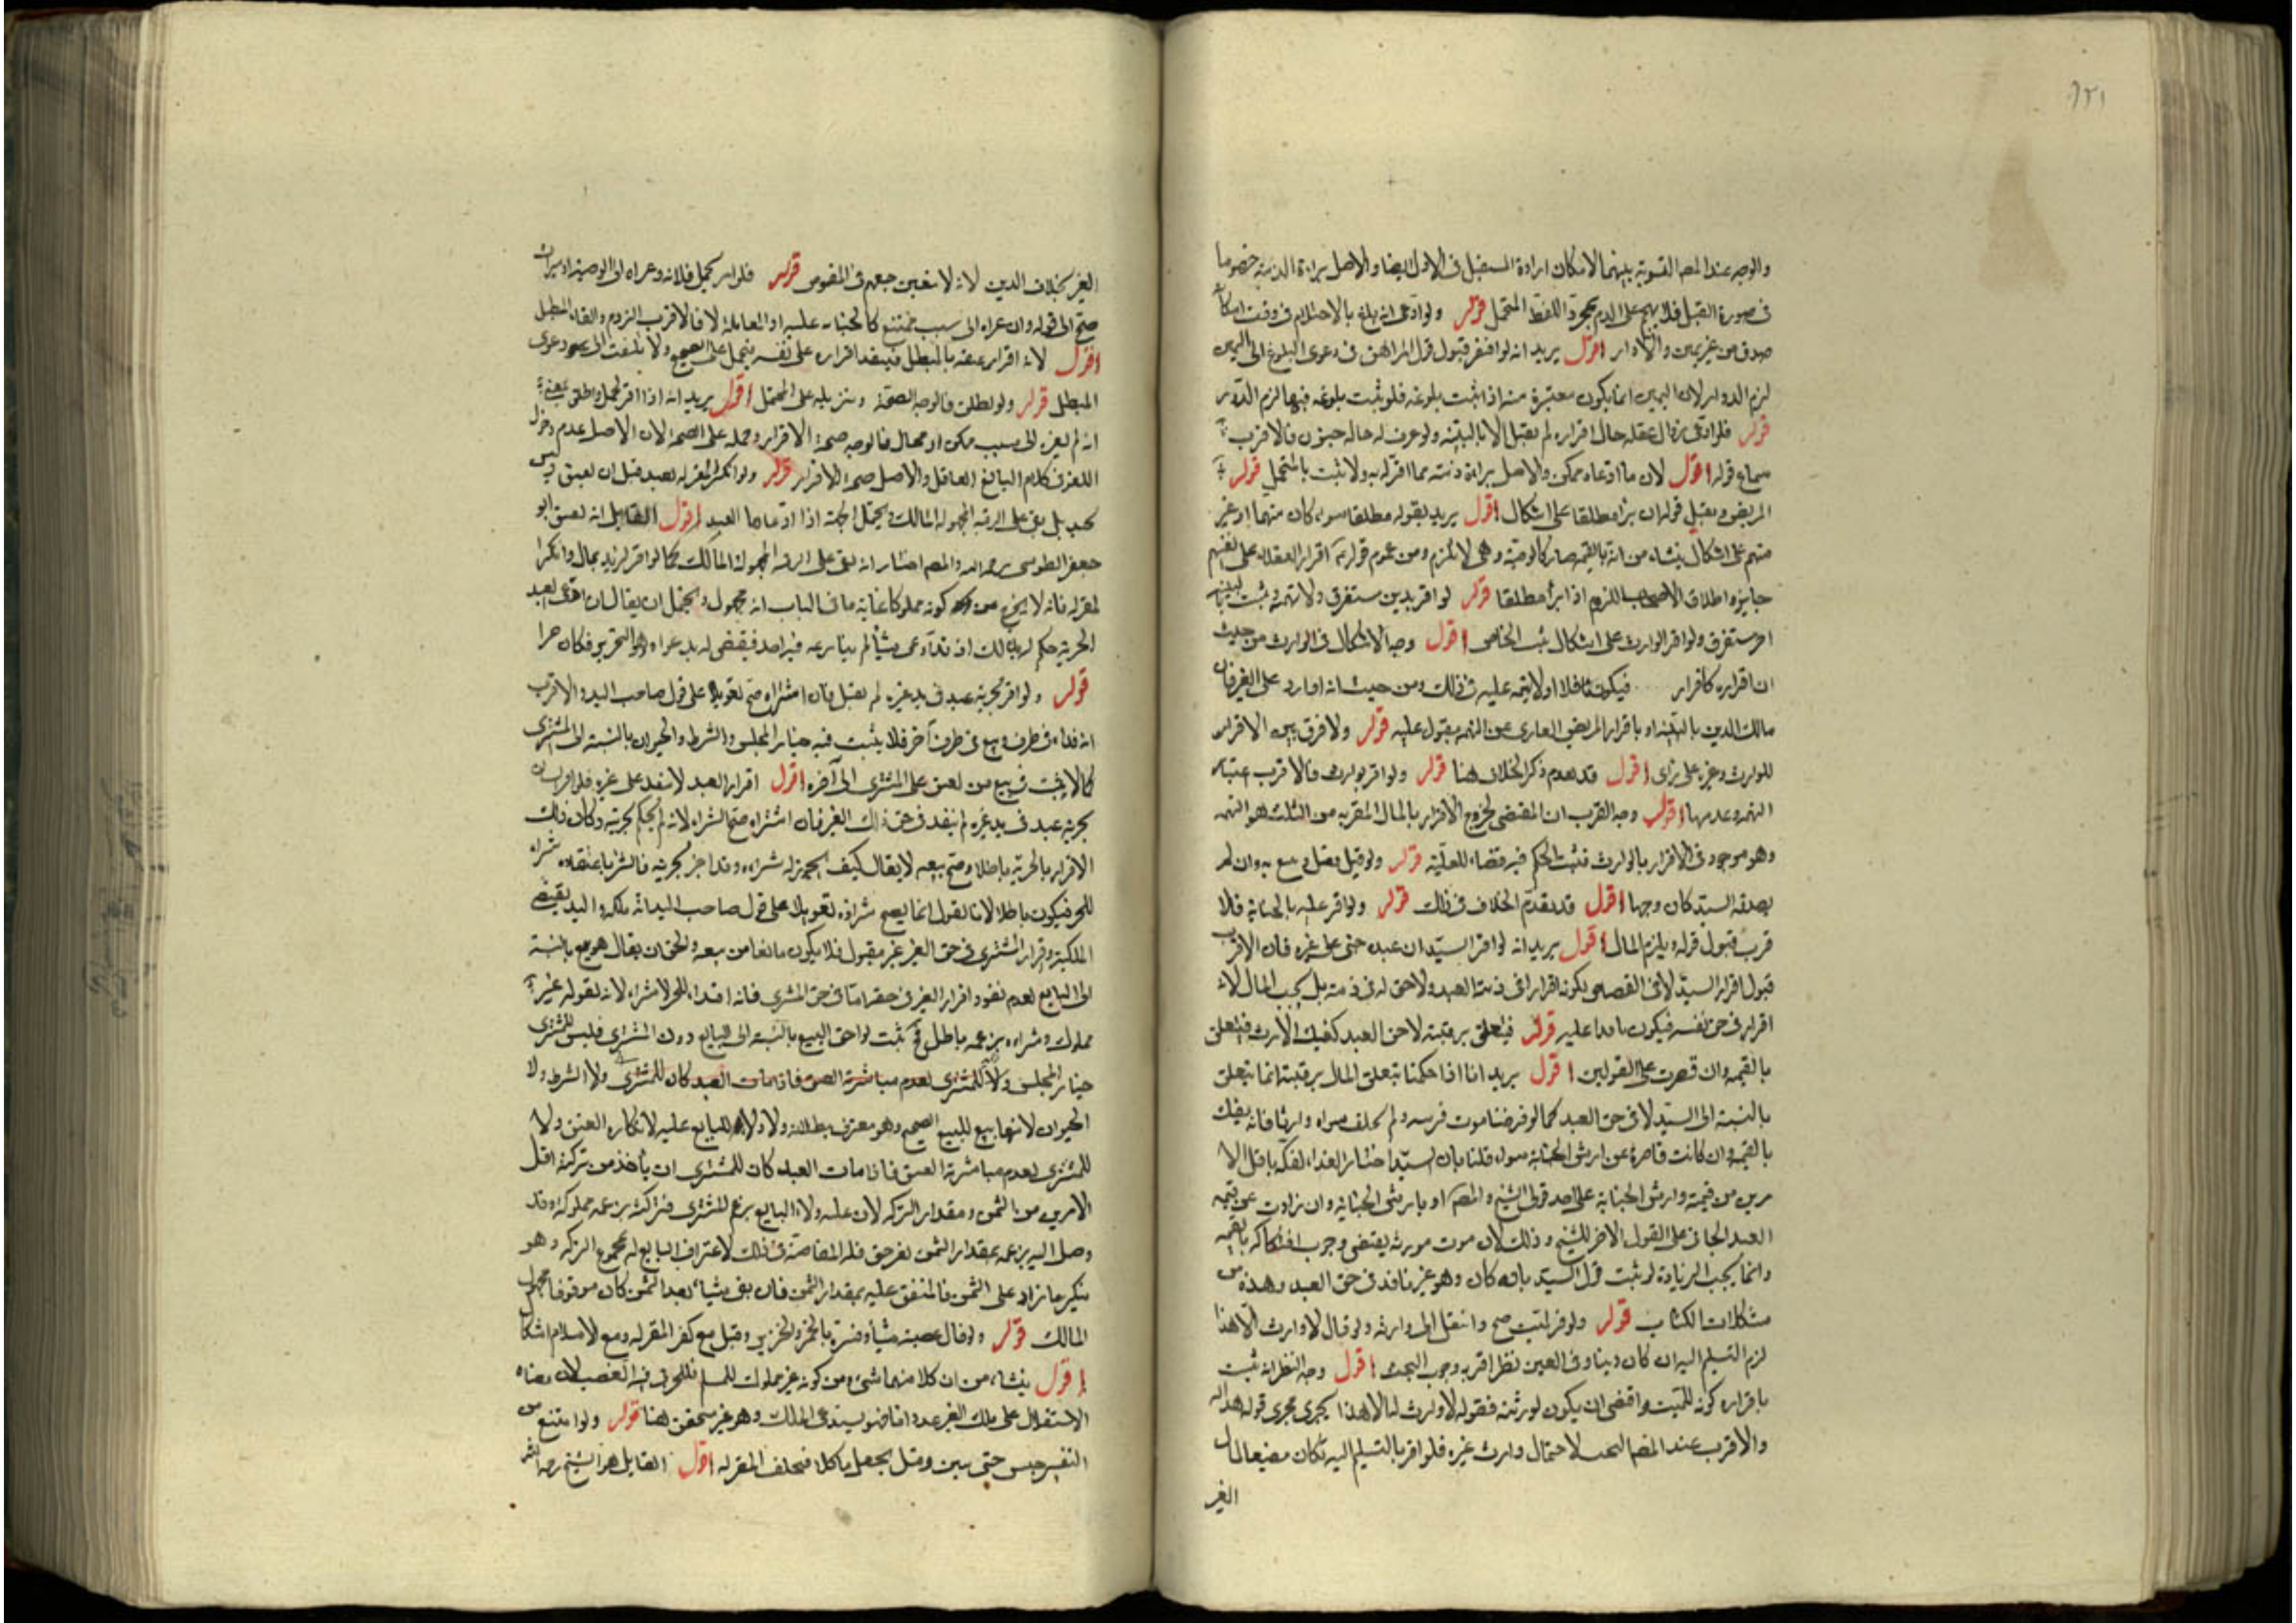 ١٢١
والوجه عند المصـ التسوية بينهما لامكان ارادة المستقبل في الاول ايضا والاصل براءة الذمة خصوصا
في صورة القبل فلا يهجم على الدم بمجرد اللفظ المحتمل قوله ولو ادعى انه بلغ بالاحتلام في وقت امكانه
صدق من غير يمين والا دار اقول يريد انه لو افتقر قبول قول المراهق في دعوى البلوغ الى اليمين
لزم الدور لان اليمين انما يكون معتبرة منه اذا ثبت بلوغه فلو ثبت بلوغه فيها لزم الدور
قوله فلو ادعى زوال عقله حال اقراره لم يقبل الا بالبينة ولو عرف له حالة جنون فالاقرب
سماع قوله اقول لان ما ادعاه ممكن والاصل براءة ذمته مما اقر له به ولا يثبت بالمحتمل قوله
المريض ويقبل قوله ان برأ مطلقا على اشكال اقول يريد بقوله مطلقا سواء كان متهما او غير
متهم على اشكال ينشاء من انه بالتهمة صار كالوصية وهي لا تلزم ومن عموم قوله اقرار العقلاء على انفسهم
جايز واطلاق الاصحاب اللزوم اذا برأ مطلقا قوله لو اقر بدين مستغرق ولا تهمة وثبت بالبينة
اخر مستغرق ولو اقر الوارث على اشكال ثبت الخاص اقول وجه الاشكال في الوارث من حيث
ان اقراره كاقرار فيكون نافذا ولا تهمة عليه في ذلك ومن حيث انه اقرار على الغير فان
مالك الدين بالبينة او باقرار المريض العاري عن التهمة مقبول عليه قوله ولا فرق بين الاقرار
للوارث وغيره على رأى اقول قد تقدم ذكر الخلاف هنا قوله ولو اقر بوارث فالاقرب اعتبار
التهمة وعدمها اقول وجه القرب ان المقتضى لخروج الاقرار بالمال المقر به من الثلث هو التهمة
وهو موجود في الاقرار بالوارث فثبت الحكم فيه قضاء للعلية قوله ولو قيل يقبل ويبيع به وان لم
يصدقه السيد كان وجها اقول قد تقدم الخلاف في ذلك قوله ولو اقر عليه بالجناية فالا
قرب قبول قوله ويلزم المال اقول يريد انه لو اقر السيد ان عبده جنى على غيره فان الاقرب
قبول اقرار السيد لا في القصاص لكونه اقرارا في ذمة العبد ولا حق له في ذمته بل يجب المال لانه
اقرار في حق نفسه فيكون نافذا عليه قوله فيتعلق برقبته لا حق العبد كفك الارث فيتعلق
بالقيمة وان قصرت على القولين اقول يريد انا اذا حكمنا بتعلق المال برقبته انما يتعلق
بالنسبة الى السيد لا في حق العبد كما لو فرضنا موت قريبه ولم يخلف سواه وارثا فانه يفك
بالقيمة وان كانت قاصرة عن ارش الجناية سواء قلنا بان السيد اذا اختار الفداء لفكه باقل الا
مرين من قيمته وارش الجناية على احد قولى الشيخ والمصـ او بارش الجناية وان زادت عن قيمة
العبد الجاني على القول الاخر للشيخ وذلك لان موت مورثه يقتضى وجوب افتكاكه بالقيمة
وانما يجب الزيادة لو ثبت قول السيد بانه كان وهو غير نافذ في حق العبد وهذه من
مشكلات الكتاب قوله ولو اقر لميت صح وانتقل الى وارثه ولو قال لا وارث الا هذا
لزم التسليم اليه ان كان دينا وفي العين نظر اقربه وجوب البحث اقول وجه النظر انه ثبت
باقراره كونه للميت واقتضى ان يكون لورثته فقوله لا وارث له الا هذا يجرى مجرى قوله هذا له
والاقرب عند المصـ البحث لاحتمال وارث غيره فلو اقر بالتسليم اليه لكان مضيعا لمال
الغير
الغير بخلاف الدين لانه لا يتعين جعله في المقبوض قوله فلو اقر لحمل فلانة وعزاه الى الوصية او ميراث
صح الى قوله وان عزاه الى سبب ممتنع كالجناية عليه او المعاملة لا فالاقرب اللزوم والغاء المبطل
اقول لانه اقرار عقبه بالمبطل فينفذ اقراره على نفسه فيحمل على الصحيح ولا يلتفت الى دعوى
المبطل قوله ولو اطلق فالوجه الصحة وتنزيله على المحتمل اقول يريد انه اذا اقر لحمل واطلق
انه لم يعزه الى سبب ممكن او محال فالوجه صحة الاقرار وحمله على الصحة لان الاصل عدم دخول
اللغو في كلام البالغ العاقل والاصل صحة الاقرار قوله ولو انكر المقر له بعبد قيل ان يعتق وليس
بجيد بل يبقى على الرقية المجهولة المالك ويحتمل الحرية اذا ادعاها العبد اقول القايل انه يعتق ابو
جعفر الطوسى رحمه الله والمصـ اختار انه يبقى على الرقية المجهولة المالك كما لو اقر لزيد بمال وانكر
المقر له فانه لا يخرج عن كونه مملوكا غاية ما في الباب انه مجهول ويحتمل ان يقال ان ادعى العبد
الحرية حكم له بذلك اذ قد ادعى شيئا لم ينازعه فيه احد فيقضى له بدعواه وهو التحرير فكان حرا
قوله ولو اقر بحرية عبد في يد غيره لم يقبل فان اشتراه صح تعويلا على قول صاحب اليد والاقرب
انه فداء في طرف وبيع في طرف اخر فلا يثبت فيه خيار المجلس والشرط والحيوان بالنسبة الى المشترى
كما لا يثبت في بيع من يعتق على المشترى الى آخره اقول اقرار العبد لا ينفذ على غيره فلو اقر انسان
بحرية عبد في يد غيره لم ينفذ في حق ذلك الغير فان اشتراه صح الشراء لانه لم يحكم بحريته وكان ذلك
الاقرار بالحرية باطلا وصح بيعه لا يقال كيف يجوز له شراءه وقد اخبر بحريته فالشراء باعتقاده شراء
للحر فيكون باطلا لانا نقول انما يصح شراؤه تعويلا على قول صاحب اليد انه ملكه واليد يقتضى
الملكية واقرار المشترى في حق الغير غير مقبول فلا يكون مانعا من بيعه والحق ان يقال هو بيع بالنسبة
الى البايع لعدم نفوذ اقرار الغير في حقه اما في حق المشترى فانه افتداء للحر لا شراء لانه بقوله غير
مملوك وشراءه بزعمه باطل فح يثبت لواحق البيع بالنسبة الى البايع دون المشترى فليس للمشترى
خيار المجلس ولا للمشترى لعدم مباشرة العتق فاذا مات العبد كان للمشترى ولا الشرط ولا
الحيوان لانها يتبع للبيع الصحيح وهو معترف ببطلانه ولا ولاء للبايع عليه لانكاره العتق ولا
للمشترى لعدم مباشرة العتق فاذا مات العبد كان للمشترى ان يأخذ من تركته اقل
الامرين من الثمن ومقدار التركة لان عليه ولاء البايع بزعم المشترى فتركته بزعمه مملوكة وقد
وصل اليه بزعمه بمقدار الثمن بغير حق فله المقاصة في ذلك لاعتراف البايع له بمجموع التركة وهو
ينكر ما زاد على الثمن فالمتفق عليه بمقدار الثمن فان بقى شيئا بعد الثمن كان موقوفا مجهول
المالك قوله ولو قال غصبته شيئا وفسره بالخمر والخنزير وقبل مع كفر المقر له ومع الاسلام اشكال
اقول ينشاء من ان كلا منهما شيء ومن كونه غير مملوك للمسلم فلا يتحقق فيه الغصب لان معناه
الاستقلال على ملك الغير عدوانا فهو يستدعى الملك وهو غير متحقق هنا قوله ولو امتنع من
التفسير حبس حتى يبين وقيل يجعل ناكلا فيحلف المقر له اقول القايل هو الشيخ رحمه الله